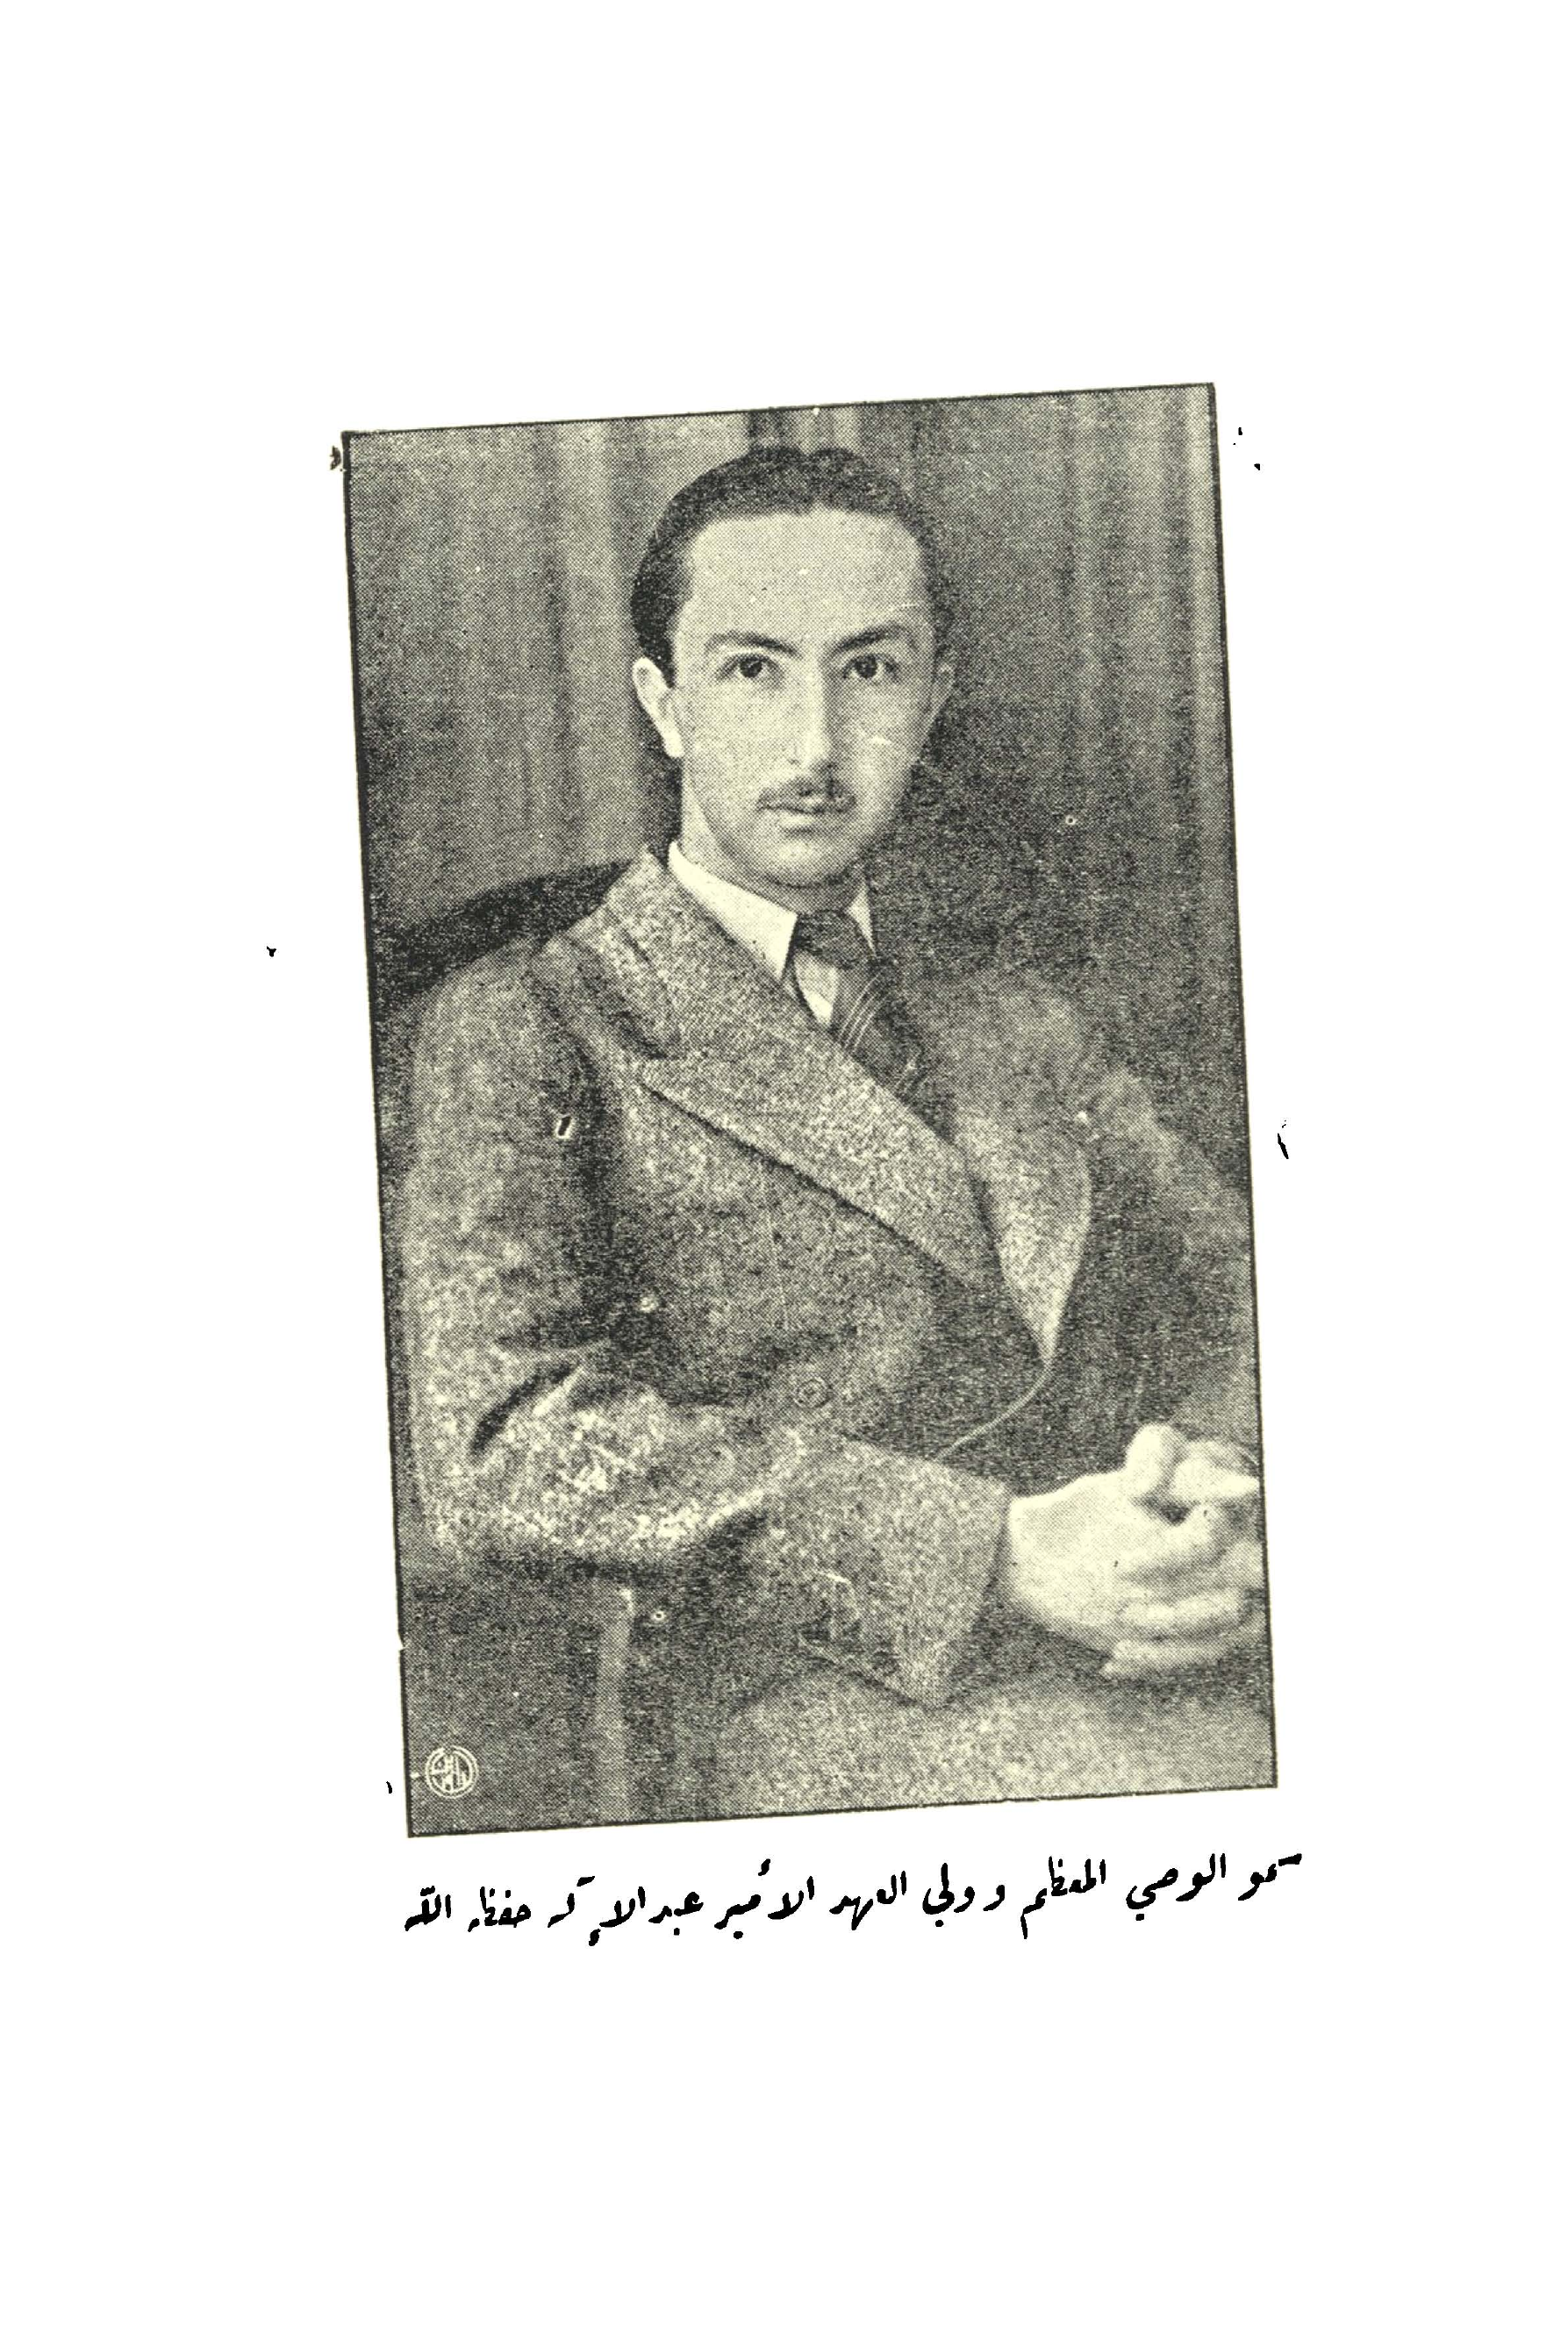 سمو الوصي المعظم وولي العهد الأمير عبد الإله حفظه الله